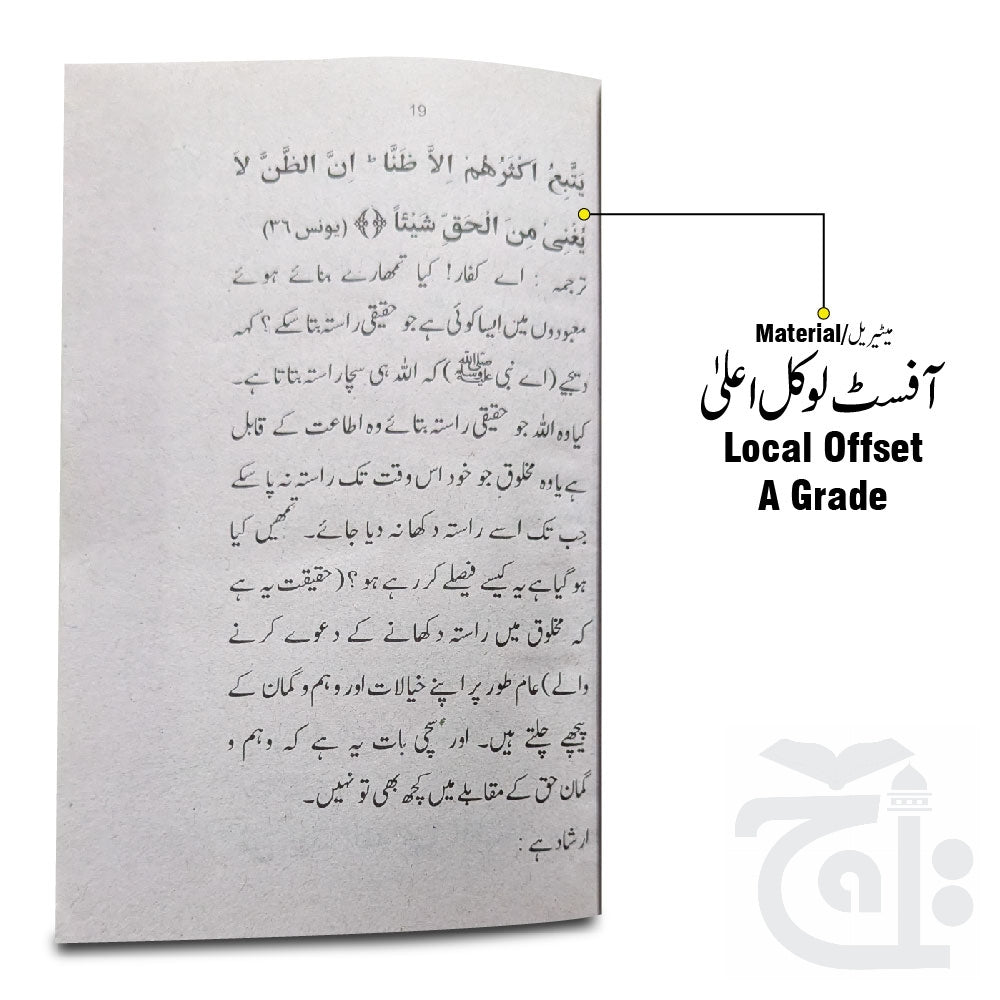 19
يَتَّبِعُ اَكْثَرُهُمْ اِلَّا ظَنًّا ؕ اِنَّ الظَّنَّ لَا
يُغْنِىْ مِنَ الْحَقِّ شَيْئًا ﴿﴾ (یونس ۳۶)
ترجمہ : اے کفار! کیا تمھارے بنائے ہوئے
معبودوں میں ایسا کوئی ہے جو حقیقی راستہ بتا سکے؟ کہہ
دیجیے (اے نبی ﷺ) کہ اللہ ہی سچا راستہ بتاتا ہے۔
کیا وہ اللہ جو حقیقی راستہ بتائے وہ اطاعت کے قابل
ہے یا وہ مخلوق جو خود اس وقت تک راستہ نہ پا سکے
جب تک اسے راستہ دکھا نہ دیا جائے۔ تمھیں کیا
ہو گیا ہے یہ کیسے فیصلے کر رہے ہو؟ (حقیقت یہ ہے
کہ مخلوق میں راستہ دکھانے کے دعوے کرنے
والے) عام طور پر اپنے خیالات اور وہم و گمان کے
پیچھے چلتے ہیں۔ اور سچی بات یہ ہے کہ وہم و
گمان حق کے مقابلے میں کچھ بھی تو نہیں۔
ارشاد ہے :
Material/میٹیریل
آفسٹ لوکل اعلیٰ
Local Offset
A Grade